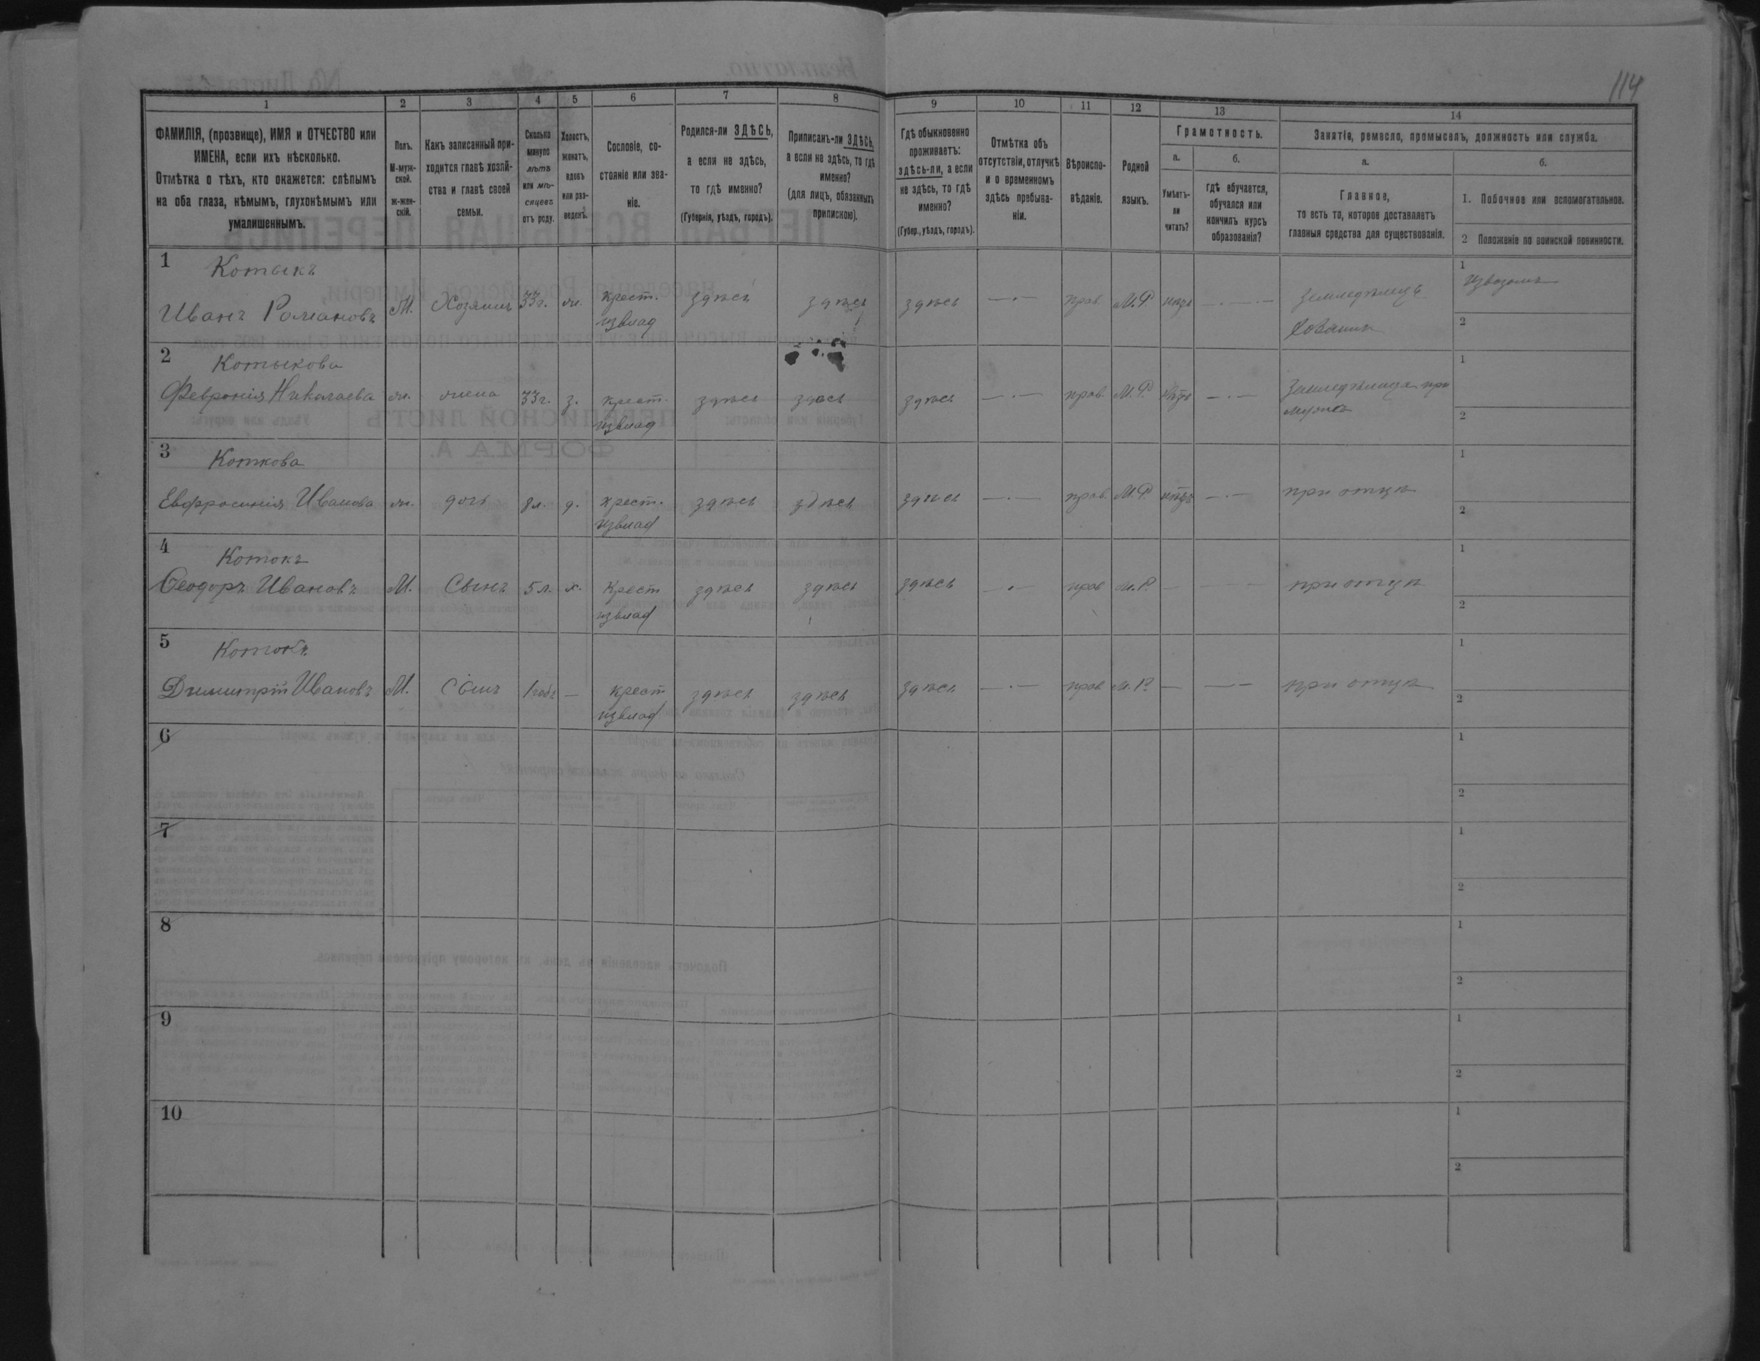 114
1 2 3 4 5 6 7 8 9 10 11 12 13 14
ФАМИЛІЯ, (прозвище), ИМЯ и ОТЧЕСТВО или
ИМЕНА, если ихъ нѣсколько.
Отмѣтка о тѣхъ, кто окажется: слѣпымъ
на оба глаза, нѣмымъ, глухонѣмымъ или
умалишеннымъ.
Полъ.
М-муж-
ской.
ж-жен-
скій.
Какъ записанный при-
ходится главѣ хозяй-
ства и главѣ своей
семьи.
Сколько
минуло
лѣтъ
или мѣ-
сяцевъ
отъ роду.
Холостъ,
женатъ,
вдовъ
или раз-
веденъ.
Сословіе, со-
стояніе или зва-
ніе.
Родился-ли ЗДѢСЬ,
а если не здѣсь,
то гдѣ именно?
(Губернія, уѣздъ, городъ).
Приписанъ-ли ЗДѢСЬ,
а если не здѣсь, то гдѣ
именно?
(для лицъ, обязанныхъ
припискою).
Гдѣ обыкновенно
проживаетъ:
здѣсь-ли, а если
не здѣсь, то гдѣ
именно?
(Губер., уѣздъ, городъ).
Отмѣтка объ
отсутствіи, отлучкѣ
и о временномъ
здѣсь пребыва-
ніи.
Вѣроиспо-
вѣданіе.
Родной
языкъ.
Грамотность.
а.
Умѣетъ-
ли
читать?
б.
гдѣ обучается,
обучался или
кончилъ курсъ
образованія?
Занятія, ремесло, промыселъ, должность или служба.
а.
Главное,
то есть то, которое доставляетъ
главныя средства для существованія.
б.
1. Побочное или вспомогательное.
2 Положеніе по воинской повинности.
1 Котыкъ 1 Извозомъ
Иванъ Романовъ М. Хозяинъ 33г. ж. крест. здѣсь здѣсь здѣсь — · — прав М.Р нѣтъ — · — земледѣлецъ
извлад 2
2 Котыкова 1
Февронія Николаева ж. жена 33г. з. крест. здѣсь здѣсь здѣсь — · — прав. М.Р. нѣтъ — · — Земледѣлица при
извлад мужѣ 2
3 Коткова 1
Евфросинія Иванова ж. дочь 8л. д. крест. здѣсь здѣсь здѣсь — · — прав М.Р нѣтъ — · — при отцѣ
извлад 2
4 Котокъ 1
Ѳеодоръ Ивановъ М. Сынъ 5 л. х. Крест здѣсь здѣсь здѣсь — · — прав М.Р. — — при отцѣ
извлад 2
5 Котокъ 1
Димитрій Ивановъ М. Сынъ 1 годъ — крест здѣсь здѣсь здѣсь — · — прав М.Р. — — при отцѣ
извлад 2
6 1
2
7 1
2
8 1
2
9 1
2
10 1
2